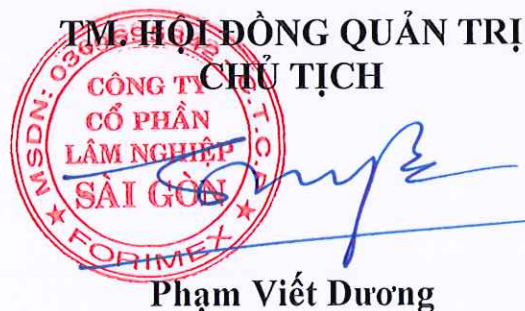 TM. HỘI ĐỒNG QUẢN TRỊ
CHỦ TỊCH
CÔNG TY
CỔ PHẦN
LÂM NGHIỆP
SÀI GÒN
★ FORIMEX ★
Phạm Viết Dương